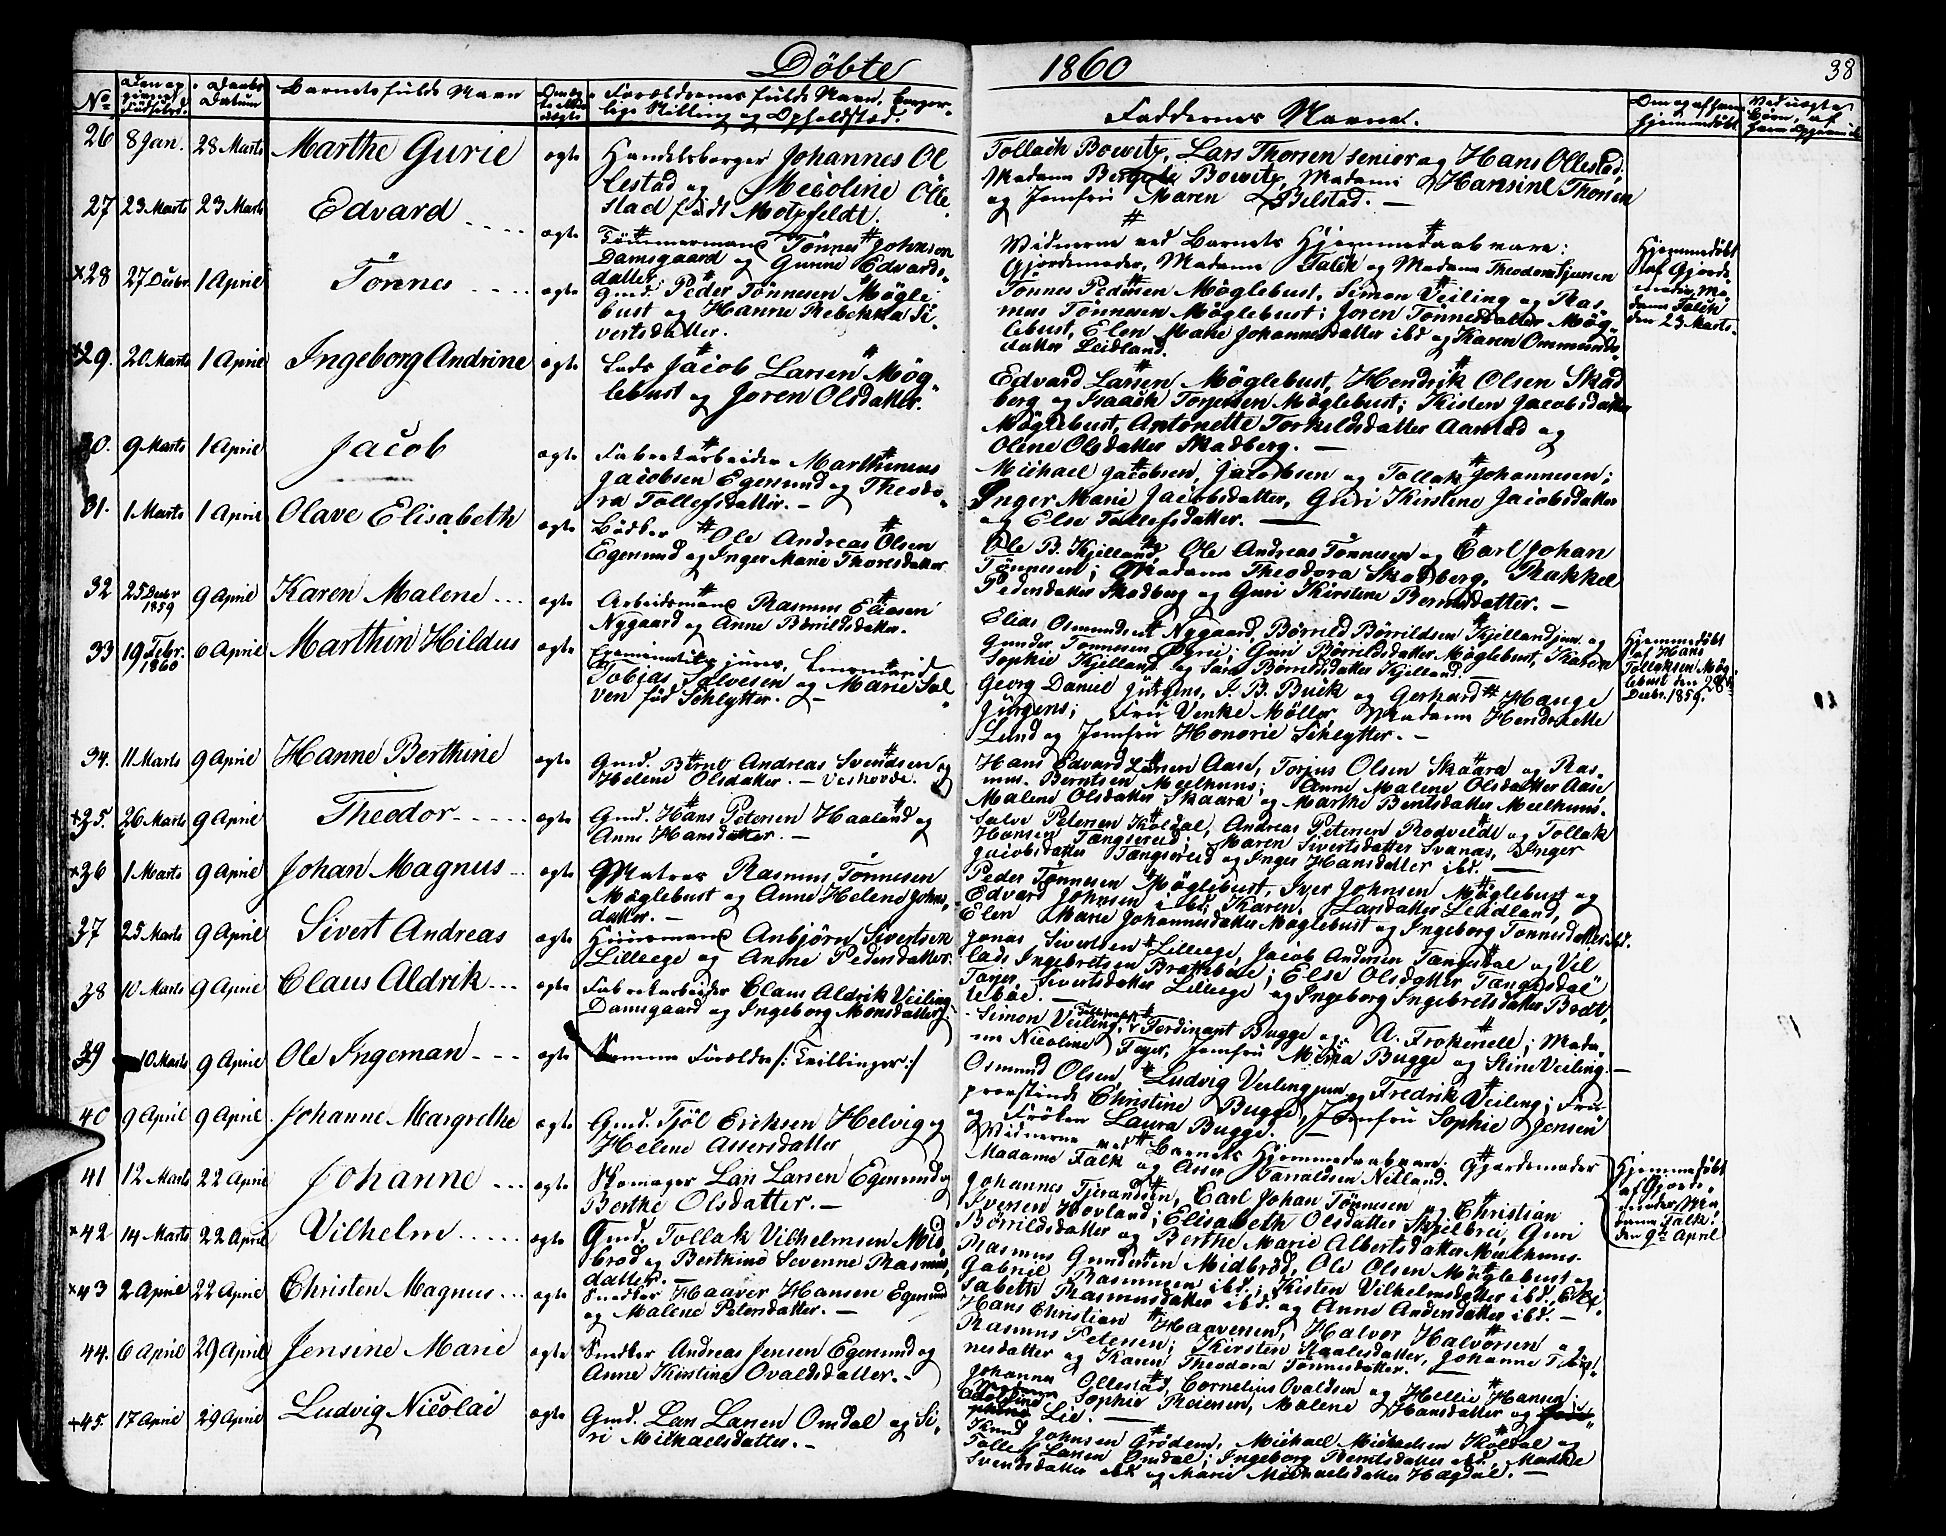 Döbte 1860 38
No Barnets fulde Navn Forældrenes fulde Navn, borgerlige Stilling og Opholdssted. Faddernes Navne.
26 8 Jan. 28 Marts Marthe Gurie ægte Handelsborger Johannes Ol
lestad og Nicoline Olle
stad født Motzfeldt.
Tollach Bowitz, Lars Thorsen senior og Hans Ollestad,
Madame Bowitz, Madame Hansine Thorsen
og Jomfru Maren Belstad. —
27 23 Marts 23 Marts Edvard ægte Tömmermand Tönnes Johnsen
Damsgaard og Gunne Edvards-
datter.
Vidnerne ved Barnets Hjemmedaab vare:
Gjordemoder, Madame Falck og Madame Theodora
Hjemmedöbt
af Gjorde
moder, Ma
dame Falck
den 23 Marts.
×28 27 Decbr. 1 April Tönnes ægte Gmd. Peder Tönnesen Mögle
bust og Hanne Rebekka Si-
vertsdatter.
Tönnes Pedersen Möglebust, Simon Veiling og Ras,
mus Tönnesen Möglebust; Joren Tönnesdatter Mög-
lebust, Elen Marie Johannesdatter ibd og Karen Ommunds-
datter Leidland.
×29. 20 Marts 1 April Ingeborg Andrine ægte Lods Jacob Larsen Mög-
lebust og Joren Olsdatter.
Edvard Larsen Möglebust, Hendrik Olsen Skad
berg og Isaack Torjesen Möglebust; Kisten Jacobsdatter
Möglebust, Antonette Torkeldsdatter Aarstad og
Olene Olsdatter Skadberg. —
30. 9 Marts 1 April Jacob ægte Fabrekarbeider Marthinus
Jacobsen Egersund og Theodo-
ra Tollefsdatter. —
Michael Jacobsen, Jacobsen og Tollak Johannesen;
Inger Marie Jacobsdatter, Guri Kirstine Jacobsdatter
og Else Tollefsdatter. —
31. 1 Marts 1 April Olave Elisabeth ægte Bödker Ole Andreas Olsen
Egersund og Inger Marie Thoresdatter
Ole B. Kjelland, Ole Andreas Tönnesen og Carl Johan
Tönnesen; Madame Theodora Skadberg, Rakkel
Pedersdatter Skadberg og Guri Kirstine Berntsdatter. —
32 25 Decbr 1859 9 April Karen Malene ægte Arbeidsmand Rasmus Eliasen
Nygaard og Anne Börrildsdatter.
Elias Osmundsen Nygaard, Börrild Börrildsen Kjelland jun. og
Gunder Tonnesen; Guri Börrildsdatter Möglebust, Karen
Sophie Kjelland og Sara Börrildsdatter Kjelland. —
Hjemmedöbt
af Hans
Tollaksen Mög
lebust den 28de
Decbr. 1859.
33 19 Febr. 1860 6 April Marthin Hildus ægte Examinatus juris,
Tobias Salvesen og Marie Sal
ven föd Schlytter. —
Georg Daniel Jürgens, J. B. Buck og Gerhard Hauge
Jürgens; Fru Venke Möller, Madame Hendrikette
Lund og Jomfru Honorie Schlytter. —
34. 11 Marts 9 April Hanne Berthine ægte Gmd. Bernt Andreas Svendsen og
Helene Olsdatter. —
Hans Edvard Larsen Aase, Torjus Olsen Skaara og Ras-
mus Berntsen Meelhuus; Anne Malene Olsdatter Aase
Malene Olsdatter Skaara og Marthe Bentsdatter Meelhuus.
×35. 26 Marts 9 April Theodor ægte Gmd. Hans Petersen Haaland og
Anne Hansdatter. —
Salve Petersen Koldal, Andreas Petersen Rodvelde og Tollak
Hansen Tangsereid; Maren Sivertsdatter Svanas, Inger
Jacobsdatter Tangsereid og Inger Hansdatter ibd. —
×36 1 Marts 9 April Johan Magnus ægte Matros Rasmus Tönnesen
Möglebust og Anne Helene Johns-
datter. —
Peder Tönnesen Möglebust, Iver Johnsen Möglebust og
Edvard Johnsen ibd; Karen Larsdatter Leidland,
Elen Marie Johannesdatter Möglebust og Ingeborg Tonnesdatter ibd.
37 25 Marts 9 April Sivert Andreas ægte Huusmand Anbjörn Sivertsen
Lilleege og Anne Pedersdatter.
Jonas Sivertsen Lilleege, Jacob Andersen Tangsdal og Vil
lads Ingebretsen Brattebøe; Else Olsdatter Tangsdal
Sivertsdatter Lilleege og Ingeborg Ingebretsdatter Brat,
tebøe. —
38 10 Marts 9 April Claus Aldrik ægte Fabrekarbeider Claus Aldrik Veiling
Damsgaard og Ingeborg Monsdatter.
Simon Veiling, Ferdinant Bugge og A. Frokenell; Mada-
me Nicoline Feyer, Jomfru Bugge og Stine Veiling. —
39 10 Marts 9 April Ole Ingeman ægte Samme Forældre /: Tvillinger :/
Osmund Olsen, Ludvig Veiling jun og Fredrik Veiling; Fru
Christine Bugge, Jomfru Sophie Jensen
og Fröken Laura Bugge. —
40 9 April 9 April Johanne Margrethe ægte Gmd. Tjöl Eriksen Helvig og
Helene Assersdatter
Vidnerne ved Barnets Hjemmedaab vare: Gjordemoder
Madame Falk og Asser Tarraldsen Netland.
Hjemmedöbt
af Gjorde
moder, Ma
dame Falk.
den 9de April
41 12 Marts 22 April Johanne ægte Skomager Lars Larsen Egersund og
Berthe Olsdatter. —
Johannes Tjerandsen, Carl Johan Tönnesen og Christian
Iversen Hovland; Elisabeth Olsdatter Skjelbrei, Guri
Börrildsdatter og Berthe Marie Albertsdatter Meelhuus.
×42 14 Marts 22 April Vilhelm ægte Gmd. Tollak Vilhelmsen Mid
brod og Berthine Severine Rasmus,
datter. —
Rasmus Gundersen Midbrød, Ole Olsen Möglebust og
Gabriel Rasmusen ibd.; Kisten Vilhelmsdatter ibd. Eli-
sabeth Rasmusdatter ibd. og Anne Andersdatter ibd. —
×43 2 April 22 April Christen Magnus ægte Snedker Haaver Hansen Egersund
og Malene Petersdatter. —
Hans Christian Haaversen, Halvor Halvorsen og
Rasmus Petersen; Kirsten Raalsdatter, Johanne Tön-
nesdatter og Karen Theodora Tönnesdatter.
44. 6 April 29 April Jensine Marie ægte Snedker Andreas Jensen Egersund og
Anne Kirstine Ovaldsdatter. —
Johannes Ollestad, Cornelius Ovaldsen og Hellie Hansen;
Sophie Roiensen, Malene Hansdatter og
Lie. —
×45. 17 April 29 April Ludvig Nicolai ægte Gmd. Lars Larsen Omdal og Si-
ri Michaelsdatter. —
Knud Johnsen Grödem, Michael Michaelsen Koldal og
Tollef Larsen Omdal; Ingeborg Berntsdatter ibd., Marthe
Svendsdatter ibd. og Marie Michaelsdatter Hægdal. —